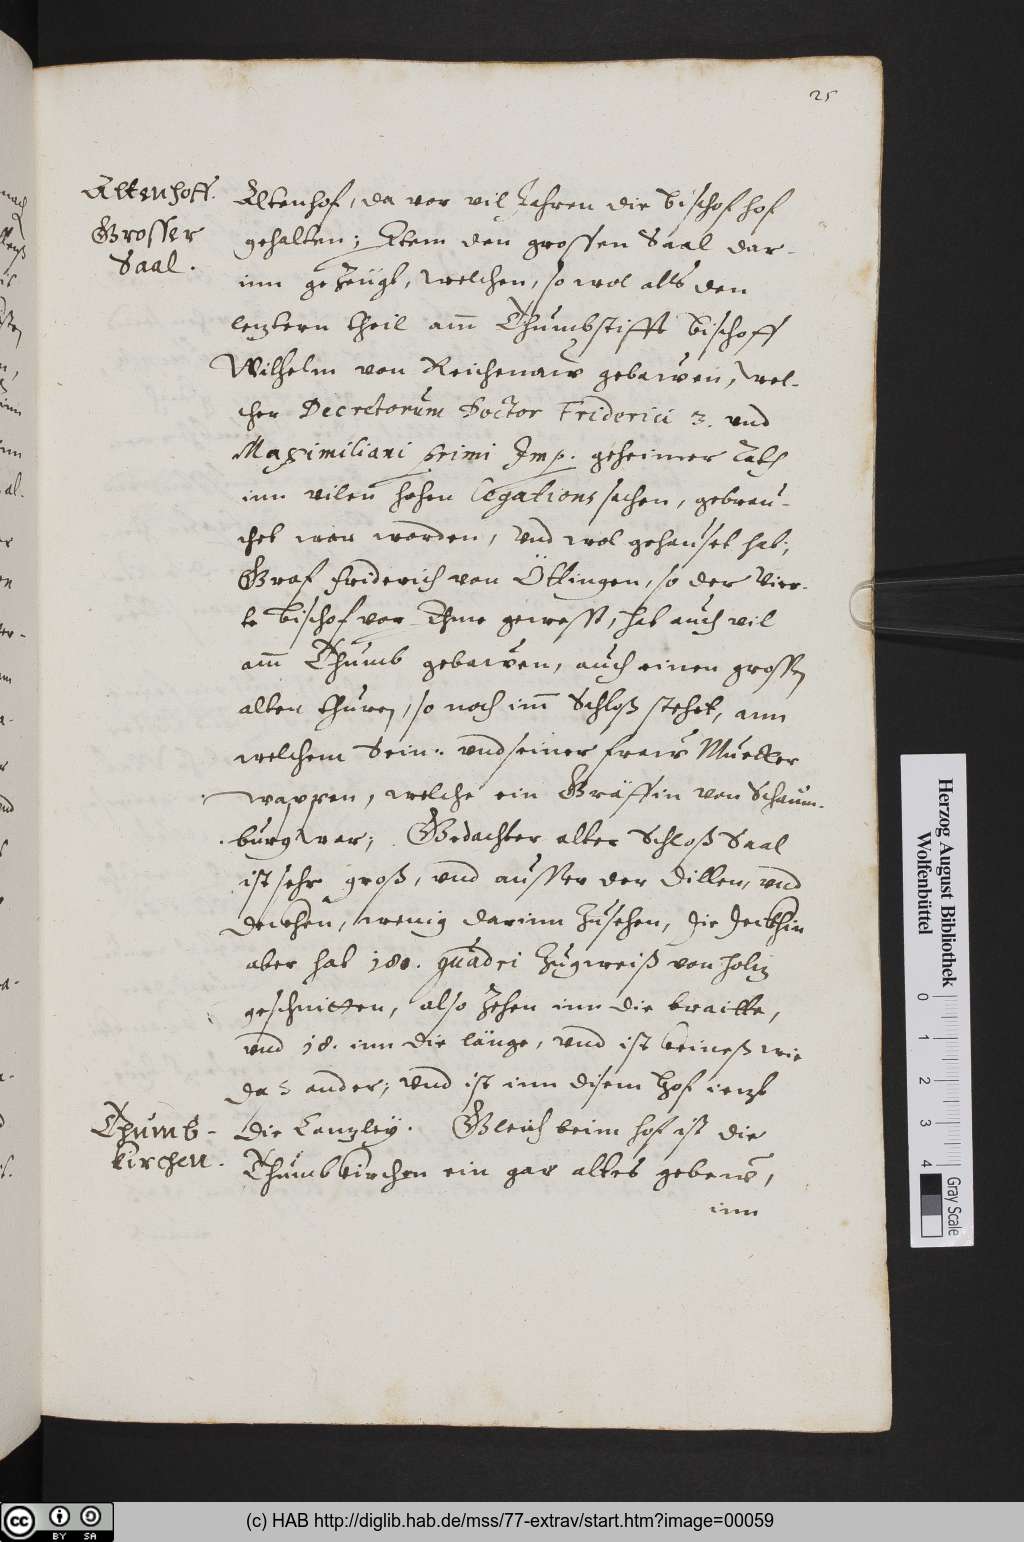 25
Altenhoff.
Grosser
Saal.
Altenhof, da vor vil Jahren die Bischof hof
gehalten; Item den grossen Saal dar-
inn gezeügt, welchen, so wol alß den
leztern theil am̄ Thumbstifft Bischoff
Wilhelm von Reichenaw gebawen, wel-
cher Decretorum Doctor Friderici 3. vnd
Maximiliani primi Imp. geheimer Rath
inn vilen hohen Legations sachen, gebrau-
chet war worden, vnd wol gehauset hat;
Graf Friderich von Öttingen, so der Vier-
te Bischof vor Ihme gewesst, hat auch vil
am̄ Thumb gebawen, auch einen grossen
alten thurn, so noch im̄ Schloß stehet, ann
welchem Sein: vnd seiner fraw Muetter
wappen, welche ein Gräffin von Schaum-
burg war; Gedachter alter Schloß Saal
ist sehr groß, vnd ausser der Dillen, vnd
Deckhen, wenig darinn zusehen, die Deckhin
aber hat 180. quadri zugweiß von holtz
geschnitten, also zehen inn die braitte,
vnd 18. inn die länge, vnd ist keines wie
das ander; vnd ist inn disem Hof ietzt
die Canzley. Gleich beim hof ist die
Thumb-
kirchen.
Thumbkirchen ein gar altes gebew,
inn
Herzog August Bibliothek
Wolfenbüttel
0 1 2 3 4
Gray Scale
cc BY SA
(c) HAB http://diglib.hab.de/mss/77-extrav/start.htm?image=00059